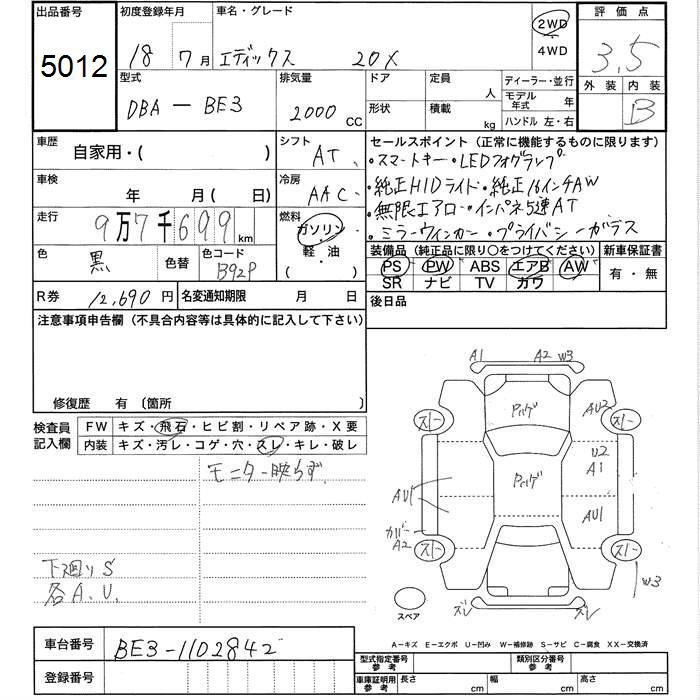 出品番号 初度登録年月 車名・グレード 2WD 4WD 評価点
5012 18 7月 エディックス 20X 3.5
型式 排気量 ドア 定員 人 ディーラー・並行 外装 内装
DBA－BE3 2000 CC 形状 積載 kg モデル年式 年 B
ハンドル 左・右
車歴 自家用・( ) シフト AT セールスポイント (正常に機能するものに限ります)
・スマートキー・LEDフォグランプ
車検 年 月(日) 冷房 AAC ・純正HIDライト・純正16インチAW
走行 9万7千699km 燃料 ガソリン・軽・油 ・無限エアロ・インパネ5速AT
・ミラーウィンカー・プライバシーガラス
色 黒 色替 色コード B92P 装備品 (純正品に限り○をつけてください) 新車保証書
PS PW ABS エアB AW 有・無
SR ナビ TV カワ
R券 12,690円 名変通知期限 月 日 後日品
注意事項申告欄 (不具合内容等は具体的に記入して下さい)
修復歴 有 (箇所 )
検査員記入欄 FW キズ・飛石・ヒビ割・リペア跡・X要
内装 キズ・汚レ・コゲ・穴・スレ・キレ・破レ
モニター映らず
下廻りS
各A.U.
A1 A2 W3
スレー Pハゲ AU2 スレー
U2
A1
AU1 Pハゲ AU1
カバーA2 スレー スレー W3
スペア ズレ ズレ
A－キズ E－エクボ U－凹み W－補修跡 S－サビ C－腐食 XX－交換済
車台番号 BE3-1102842
型式指定番号 参考 類別区分番号 参考
登録番号 車庫証明用 参考 長さ cm 幅 cm 高さ cm